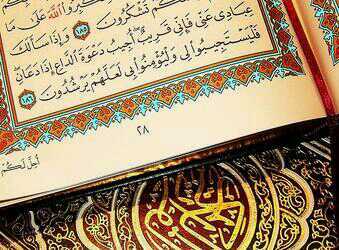 اللَّهَ عَلَىٰ مَا
تَشْكُرُونَ ١٨٥ وَإِذَا سَأَلَكَ
عِبَادِي عَنِّي فَإِنِّي قَرِيبٌ أُجِيبُ دَعْوَةَ الدَّاعِ إِذَا دَعَانِ
فَلْيَسْتَجِيبُوا لِي وَلْيُؤْمِنُوا بِي لَعَلَّهُمْ يَرْشُدُونَ ١٨٦
٢٨
أُحِلَّ لَكُمْ